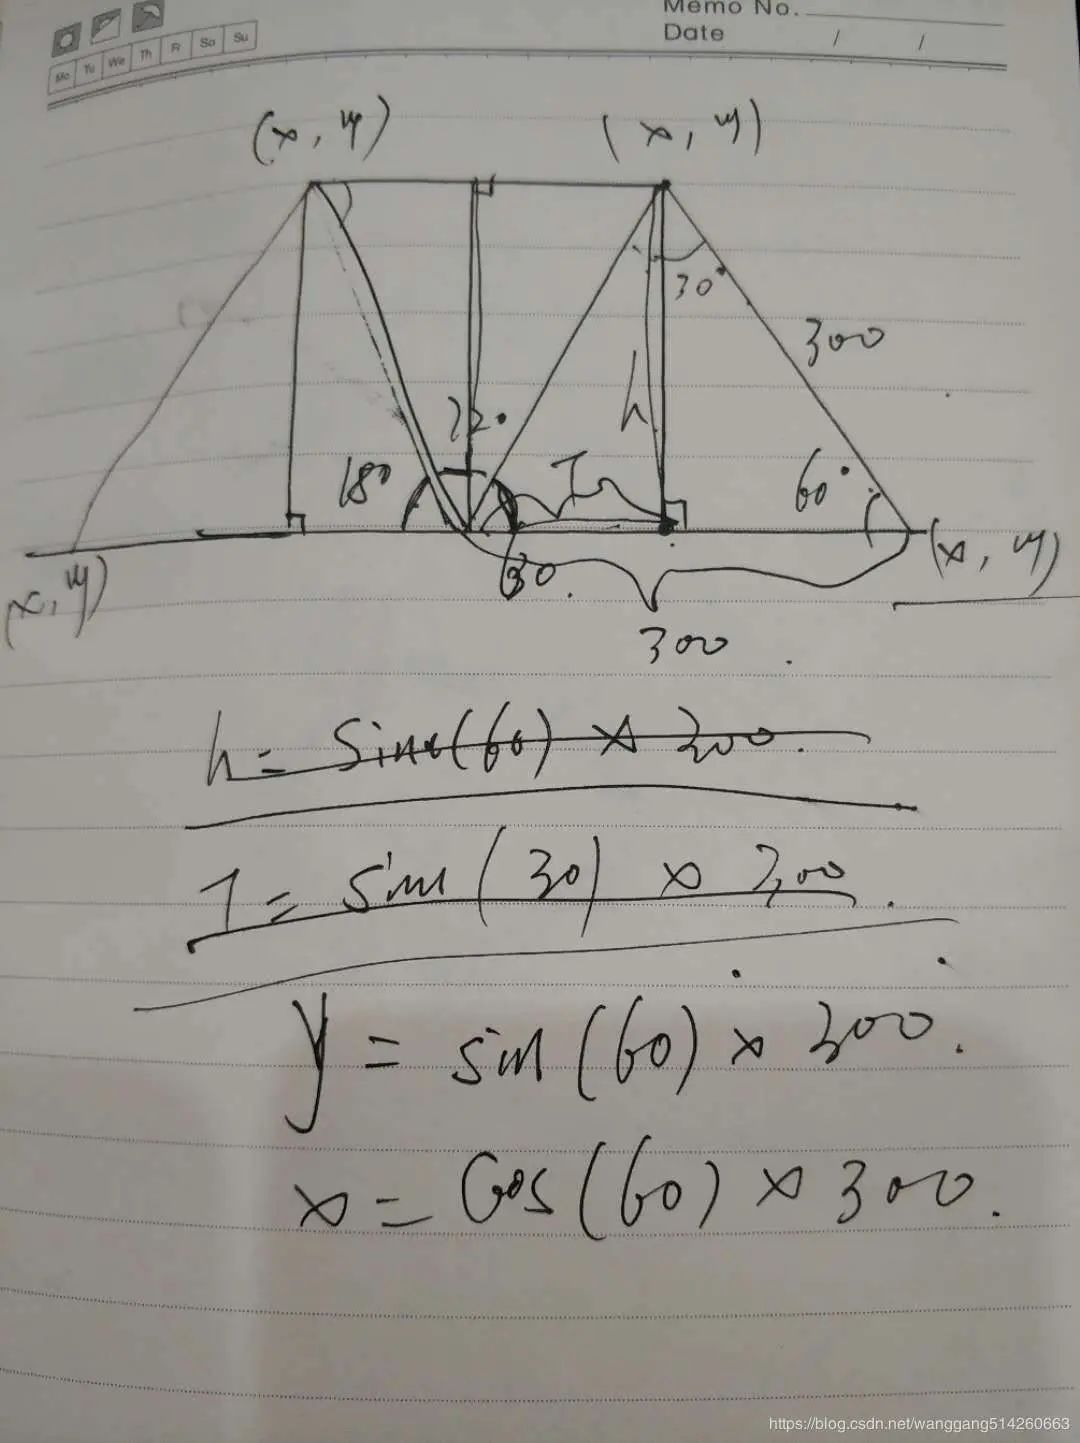 Memo No.
Date / /
Mo Tu We Th Fr Sa Su
(x, y) (x, y)
30°
300
h
180 60°
(x, y) 30. (x, y)
300
h = sin(60) × 300.
I = sin(30) × 300.
y = sin(60) × 300.
x = Cos(60) × 300.
https://blog.csdn.net/wanggang514260663